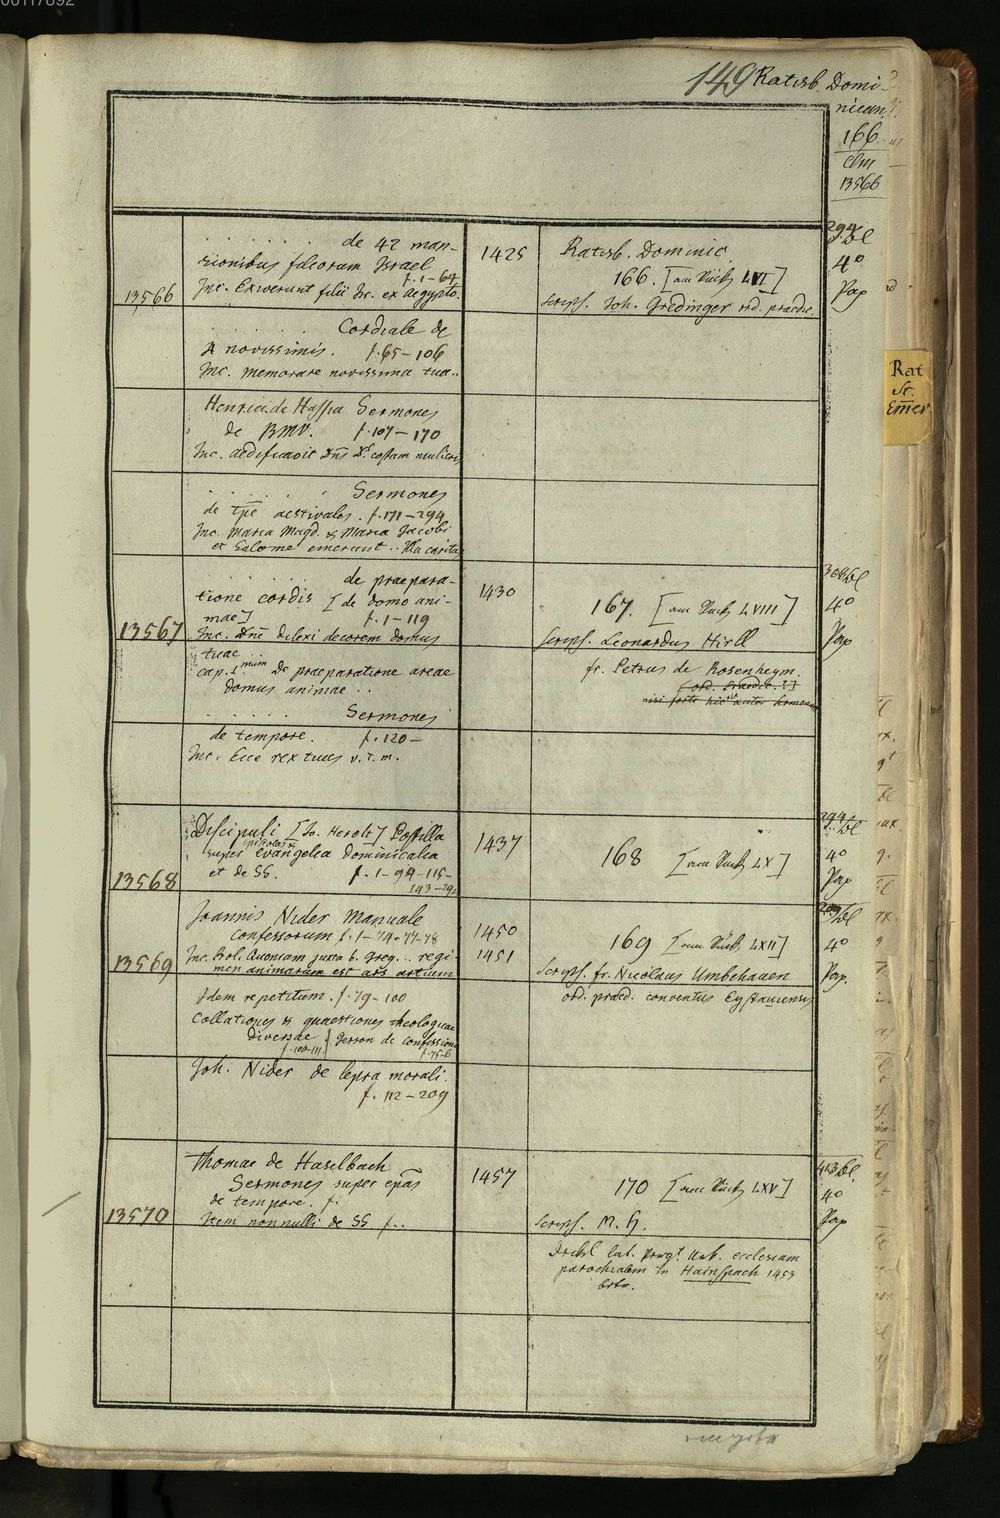 00117892
149 Ratisb. Domi-
nican.
166
Clm
13566
. . . . . . de 42 man-
sionibus filiorum Israel
f. 1-64
Inc. Exierunt filii Isr. ex aegypto.
13566
1425
Ratisb. Dominic.
166. [am Rück LVI]
Scrips. Joh. Gredinger ord. praedic.
294 Bl
4°
Pap
. . . . . . Cordiale de
4 novissimis. f. 65-106
Inc. Memorare novissima tua..
Henrici de Hassia Sermones
de BMV. f. 107-170
Inc. aedificavit Dns Ds costam mulieris
. . . . . Sermones
de tpe aestivales. f. 171-294
Inc. Maria Magd. & Maria Jacobi
et Salome emerunt .. Illa caritas
. . . . . . de praepara-
tione cordis [de domo ani-
mae] f. 1-119
Inc. Dne dilexi decorem domus
tuae ..
cap. 1mum De praeparatione areae
domus animae ..
13567
1430
167. [am Rück LVIII]
Scrips. Leonardus Hirll
fr. Petrus de Rosenheym.
[ord. Praedic. ?]
308 Bl
4°
Pap
. . . . . . Sermones
de tempore. f. 120-
Inc. Ecce rex tuus v. t. m.
Discipuli [Jo. Herolt] Postilla
epistolas &
super evangelia dominicalia
et de SS. f. 1-94-115-
143-294
13568
1437
168 [am Rück LX]
294 Bl
4°
Pap
Joannis Nider Manuale
Confessorum f. 1-74. 77-78
Inc. Prol. Quoniam juxta b. Greg. .. regi-
men animarum est ars artium
13569
1450
1451
169 [am Rück LXII]
Scrips. fr. Nicolaus Umbehauen
ord. praed. conventus Eystaviensis
209 Bl
4°
Pap.
Idem repetitum. f. 79-100
Collationes & quaestiones theologicae
diversae f. 100-111 | Gerson de confessione
f. 75-6
Joh. Nider de lepra morali.
f. 112-209
Thomae de Haselbach
Sermones super epas
de tempore. f.
Item nonnulli de SS f. ..
13570
1457
170 [am Rück LXV]
Scrips. M. H.
413 Bl.
4°
Pap
lat. Urb. ecclesiam
parochialem in Hainspach 1453
Rat
St.
Emer.